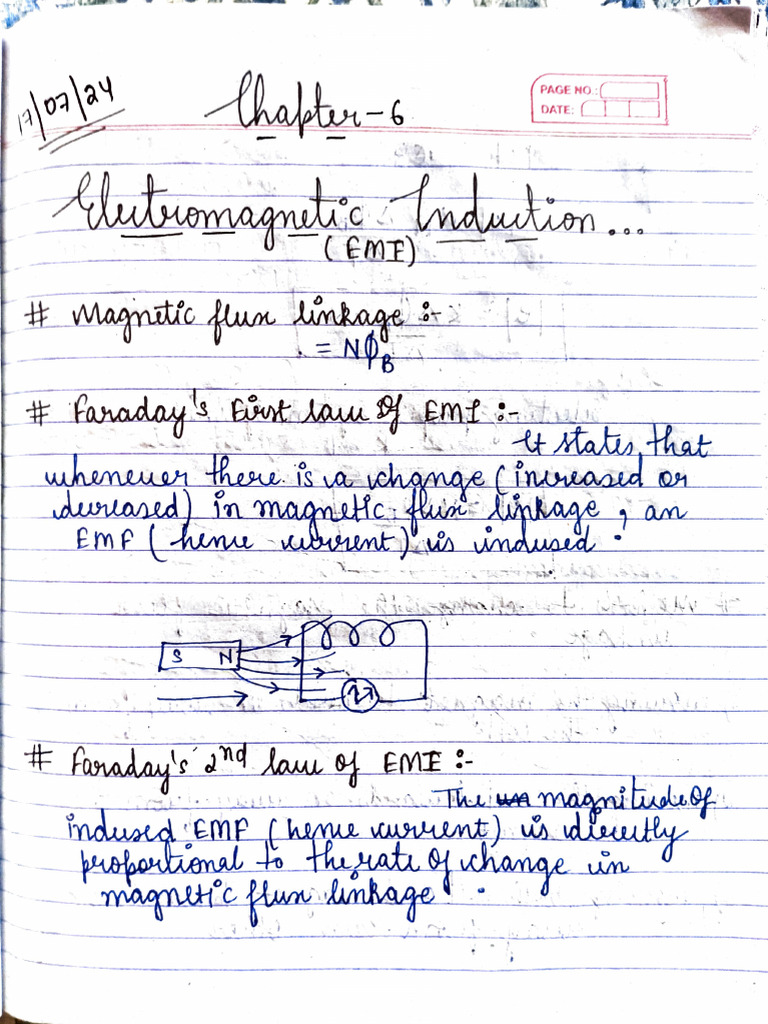 17/07/24
Chapter-6
PAGE NO.:
DATE:
Electromagnetic Induction...
(EMI)
# Magnetic flux linkage :-
= NϕB
# Faraday's First law of EMI :-
It states, that
whenever there is a change (increased or
decreased) in magnetic flux linkage, an
EMF (hence current) is indused.
S N
# Faraday's 2nd law of EMI :-
The magnitude of
indused EMF (hence current) is directly
proportional to the rate of change in
magnetic flux linkage.